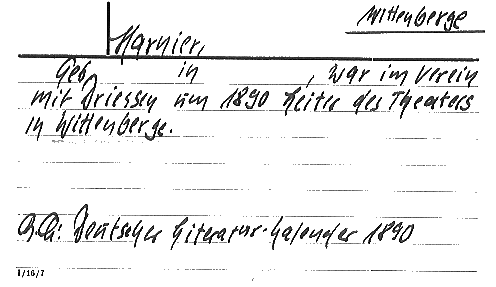 Wittenberge
Harnier,
Geb. in , war im Verein
mit Driessen um 1890 Leiter des Theaters
in Wittenberge.
Q.A.: Deutscher Literatur-Kalender 1890
I/16/7